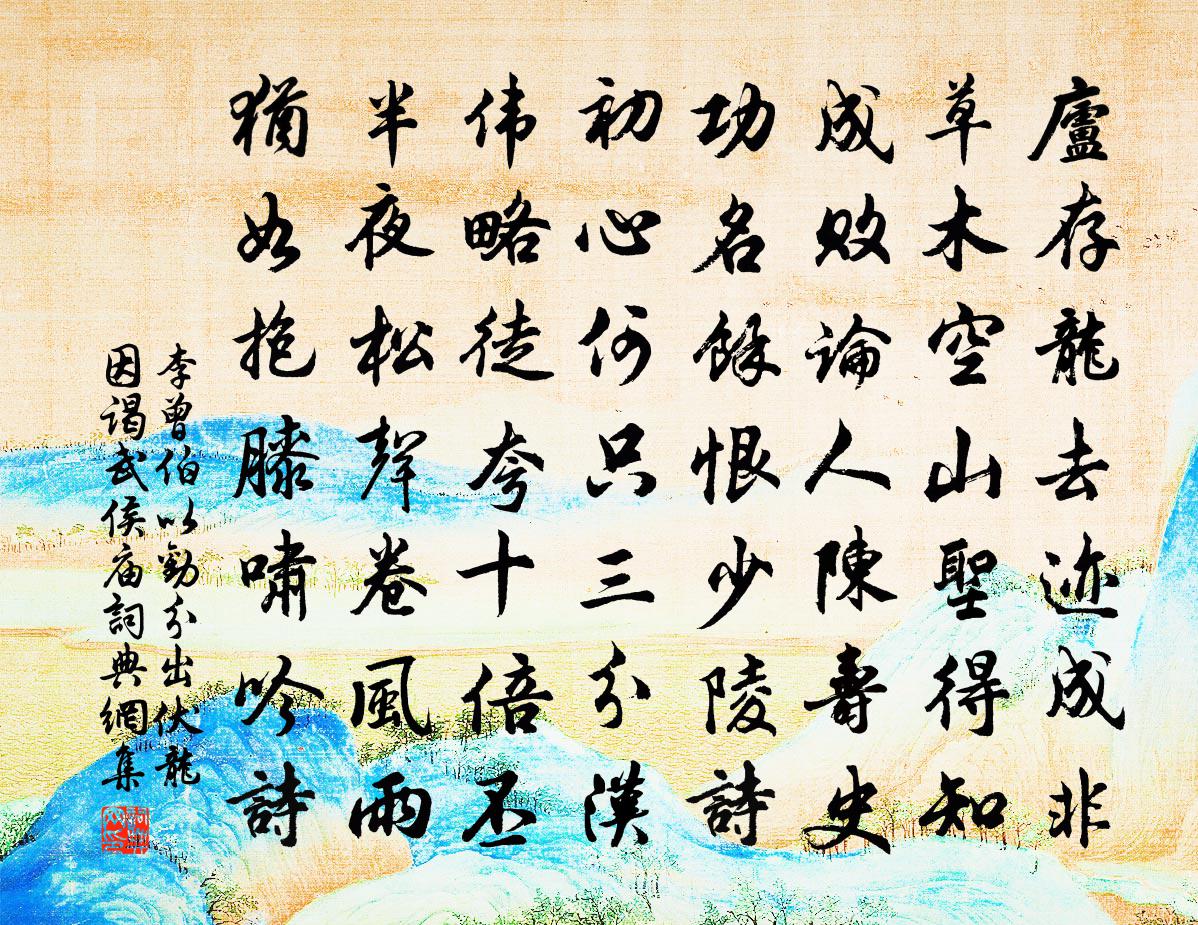 廬存龍去迹成非
草木空山聖得知
成敗論人陳壽史
功名餘恨少陵詩
初心何只三分漢
伟略徒夸十倍丕
半夜松聲卷風雨
猶如抱膝嘯吟詩
李曾伯以勤分出伏龍
因谒武侯庙詞典網集